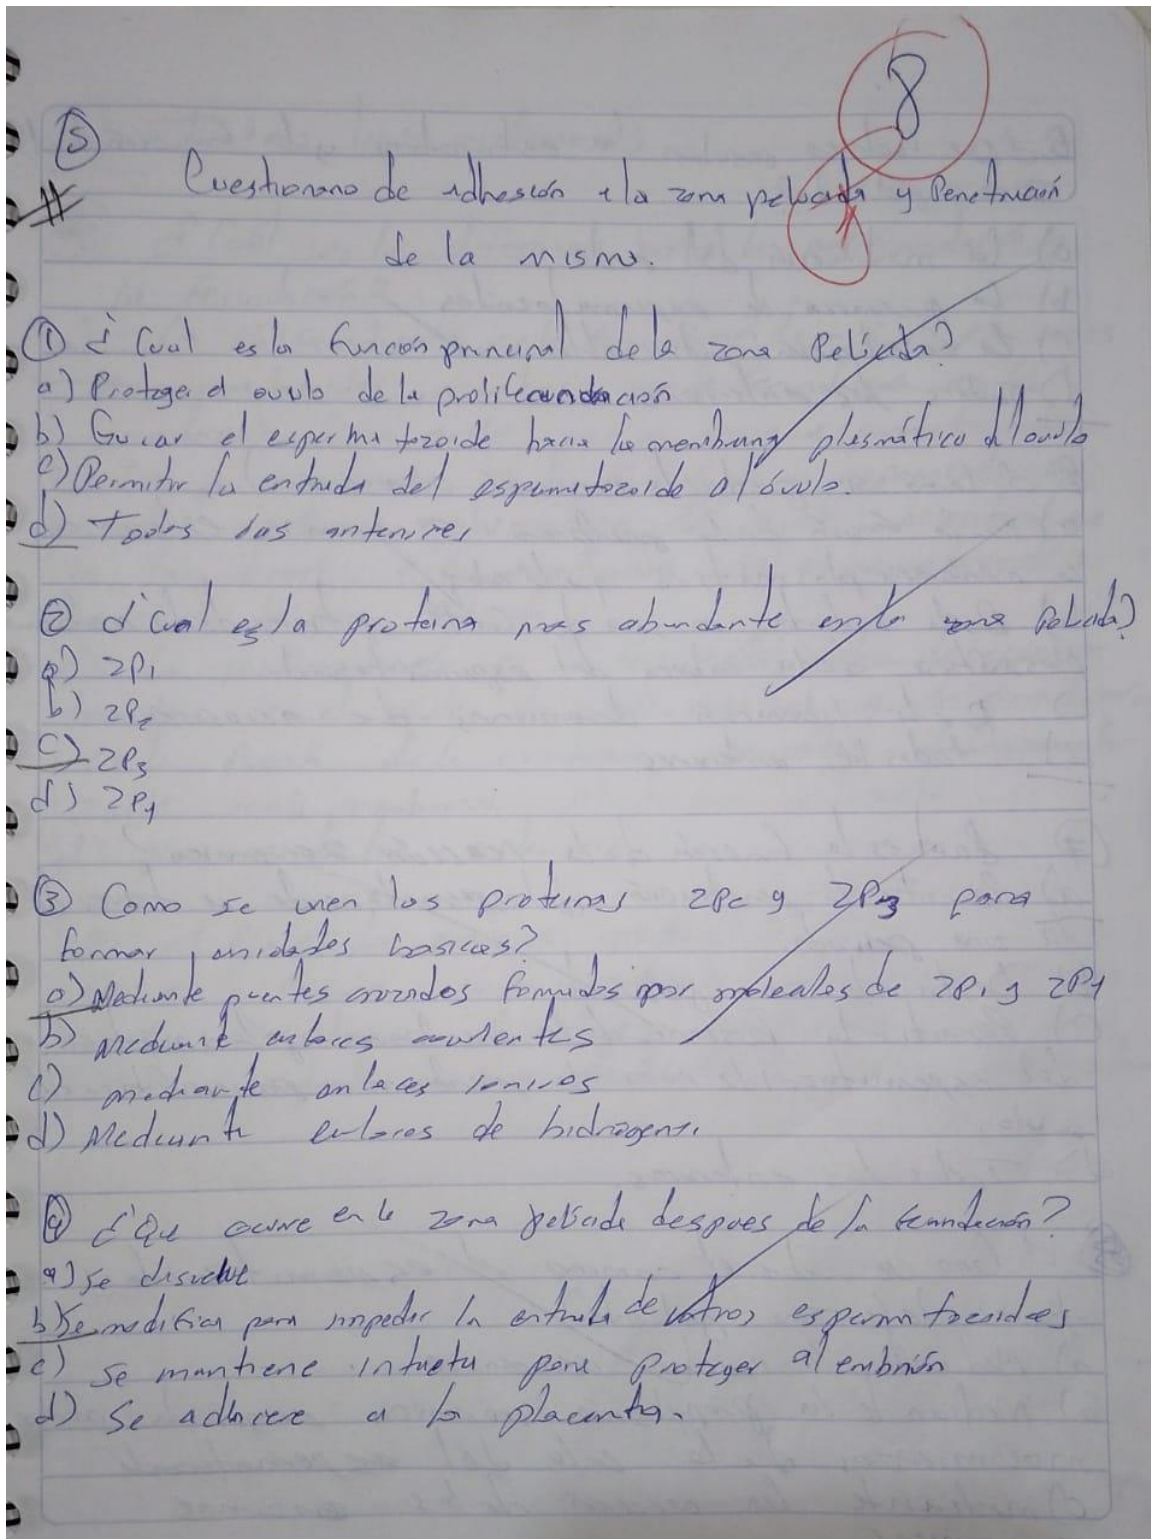 8
5
Cuestionario de adhesión a la zona pelucida y Penetración
de la misma.
① ¿Cual es la función principal de la zona Pelucida?
a) Proteger el ovulo de la
b) Guiar el espermatozoide hacia la membrana plasmática del ovulo
c) Permitir la entrada del espermatozoide al óvulo.
d) Todas las anteriores
② ¿Cual es la proteina mas abundante en la zona Pelucida?
a) ZP1
b) ZP2
c) ZP3
d) ZP4
③ Como se unen las proteinas y ZP3 para
formar unidades basicas?
a) Mediante puentes cruzados formados por moleculas de ZP1 y ZP4
b) Mediante enlaces covalentes
c) mediante enlaces ionicos
d) Mediante enlaces de hidrogeno.
④ ¿Que ocurre en la zona pelucida despues de la fecundación?
a) Se disuelve
b) Se modifica para impedir la entrada de otros espermatozoides
c) Se mantiene intacta para Proteger al embrión
d) Se adhiere a la placenta.